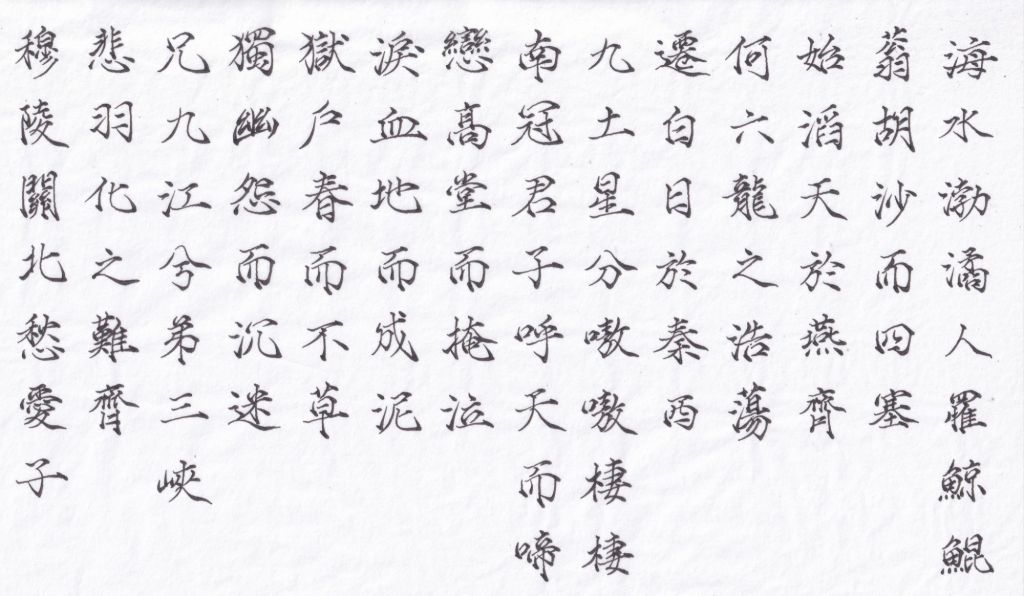 海水渤潏人罹鯨鯤
蓊胡沙而四塞
始滔天於燕齊
何六龍之浩蕩
遷白日於秦西
九土星分嗷嗷棲棲
南冠君子呼天而啼
戀高堂而掩泣
淚血地而成泥
獄戶春而不草
獨幽怨而沉迷
兄九江兮弟三峽
悲羽化之難齊
穆陵關北愁愛子